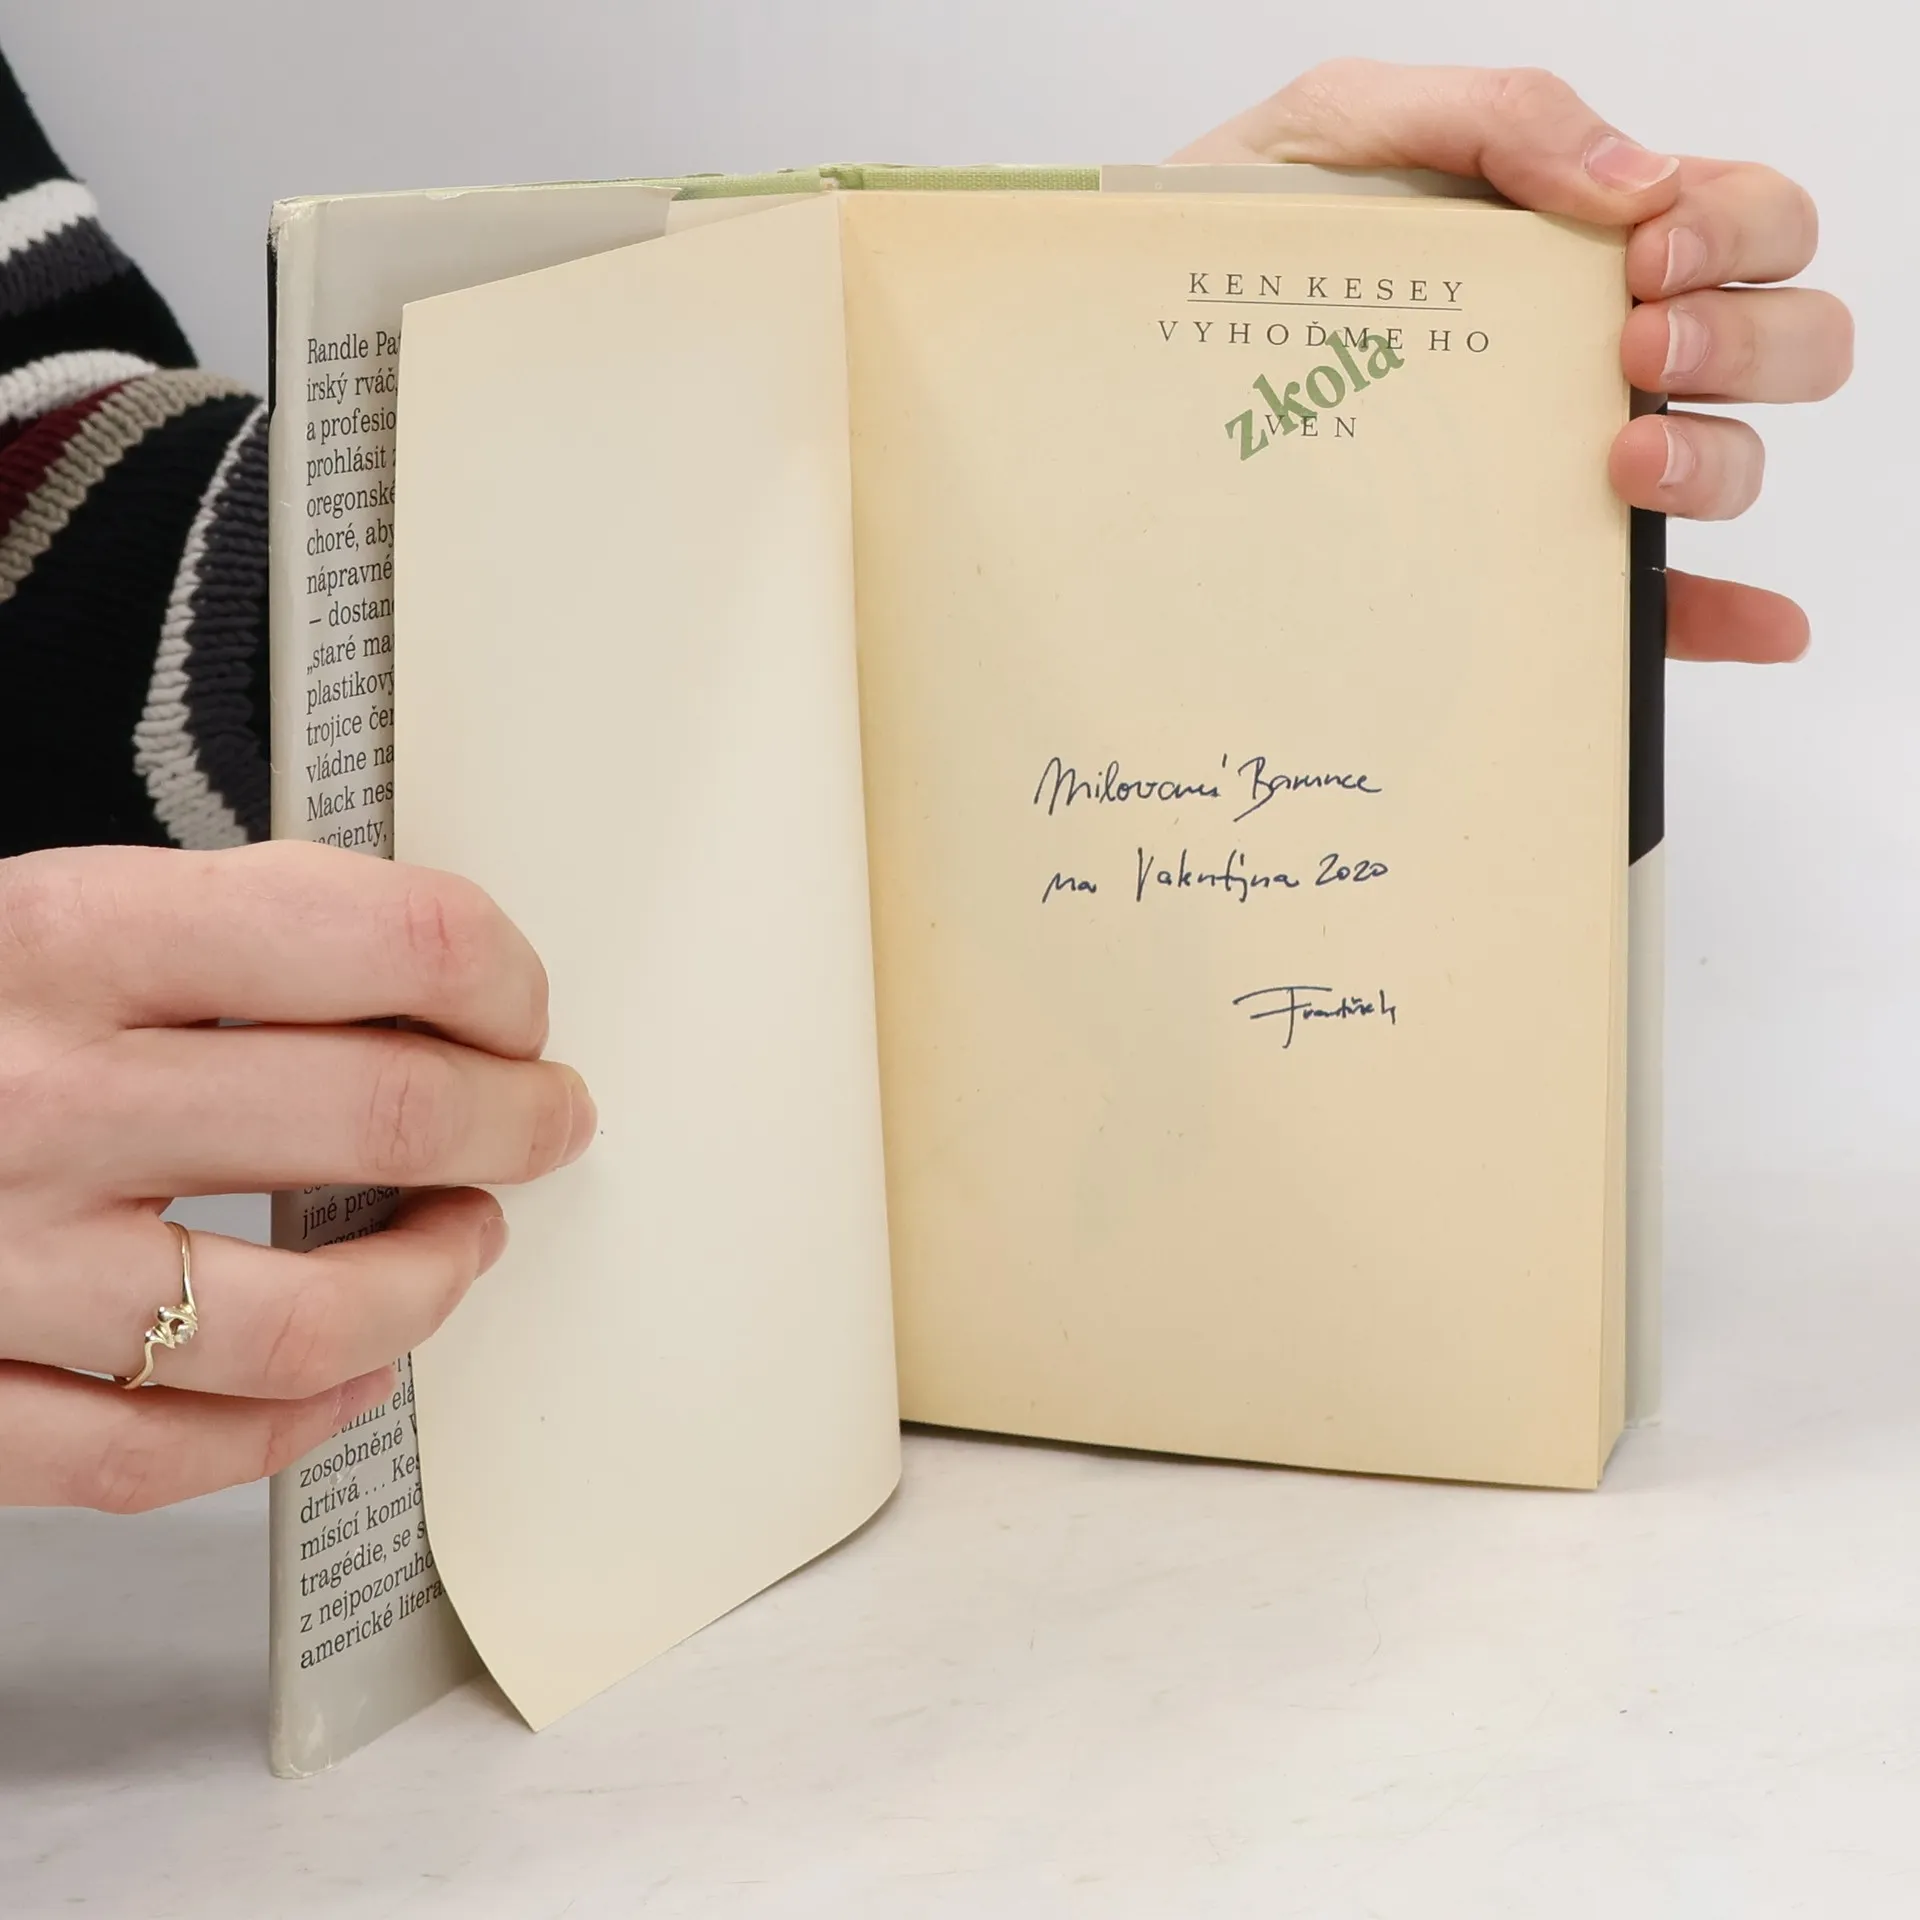 Randle Pat
irský rváč,
a profesio
prohlásit z
oregonské
choré, aby
nápravné
– dostane
„staré ma
plastikový
trojice čer
vládne na
Mack nes
acienty,
jiné prosa
organi
elá
zosobněné V
drtivá... Kes
mísící komič
tragédie, se s
z nejpozoruho
americké litera
KEN KESEY
VYHOĎME HO
VEN
zkola
Milované Barunce
na Valentýna 2020
František